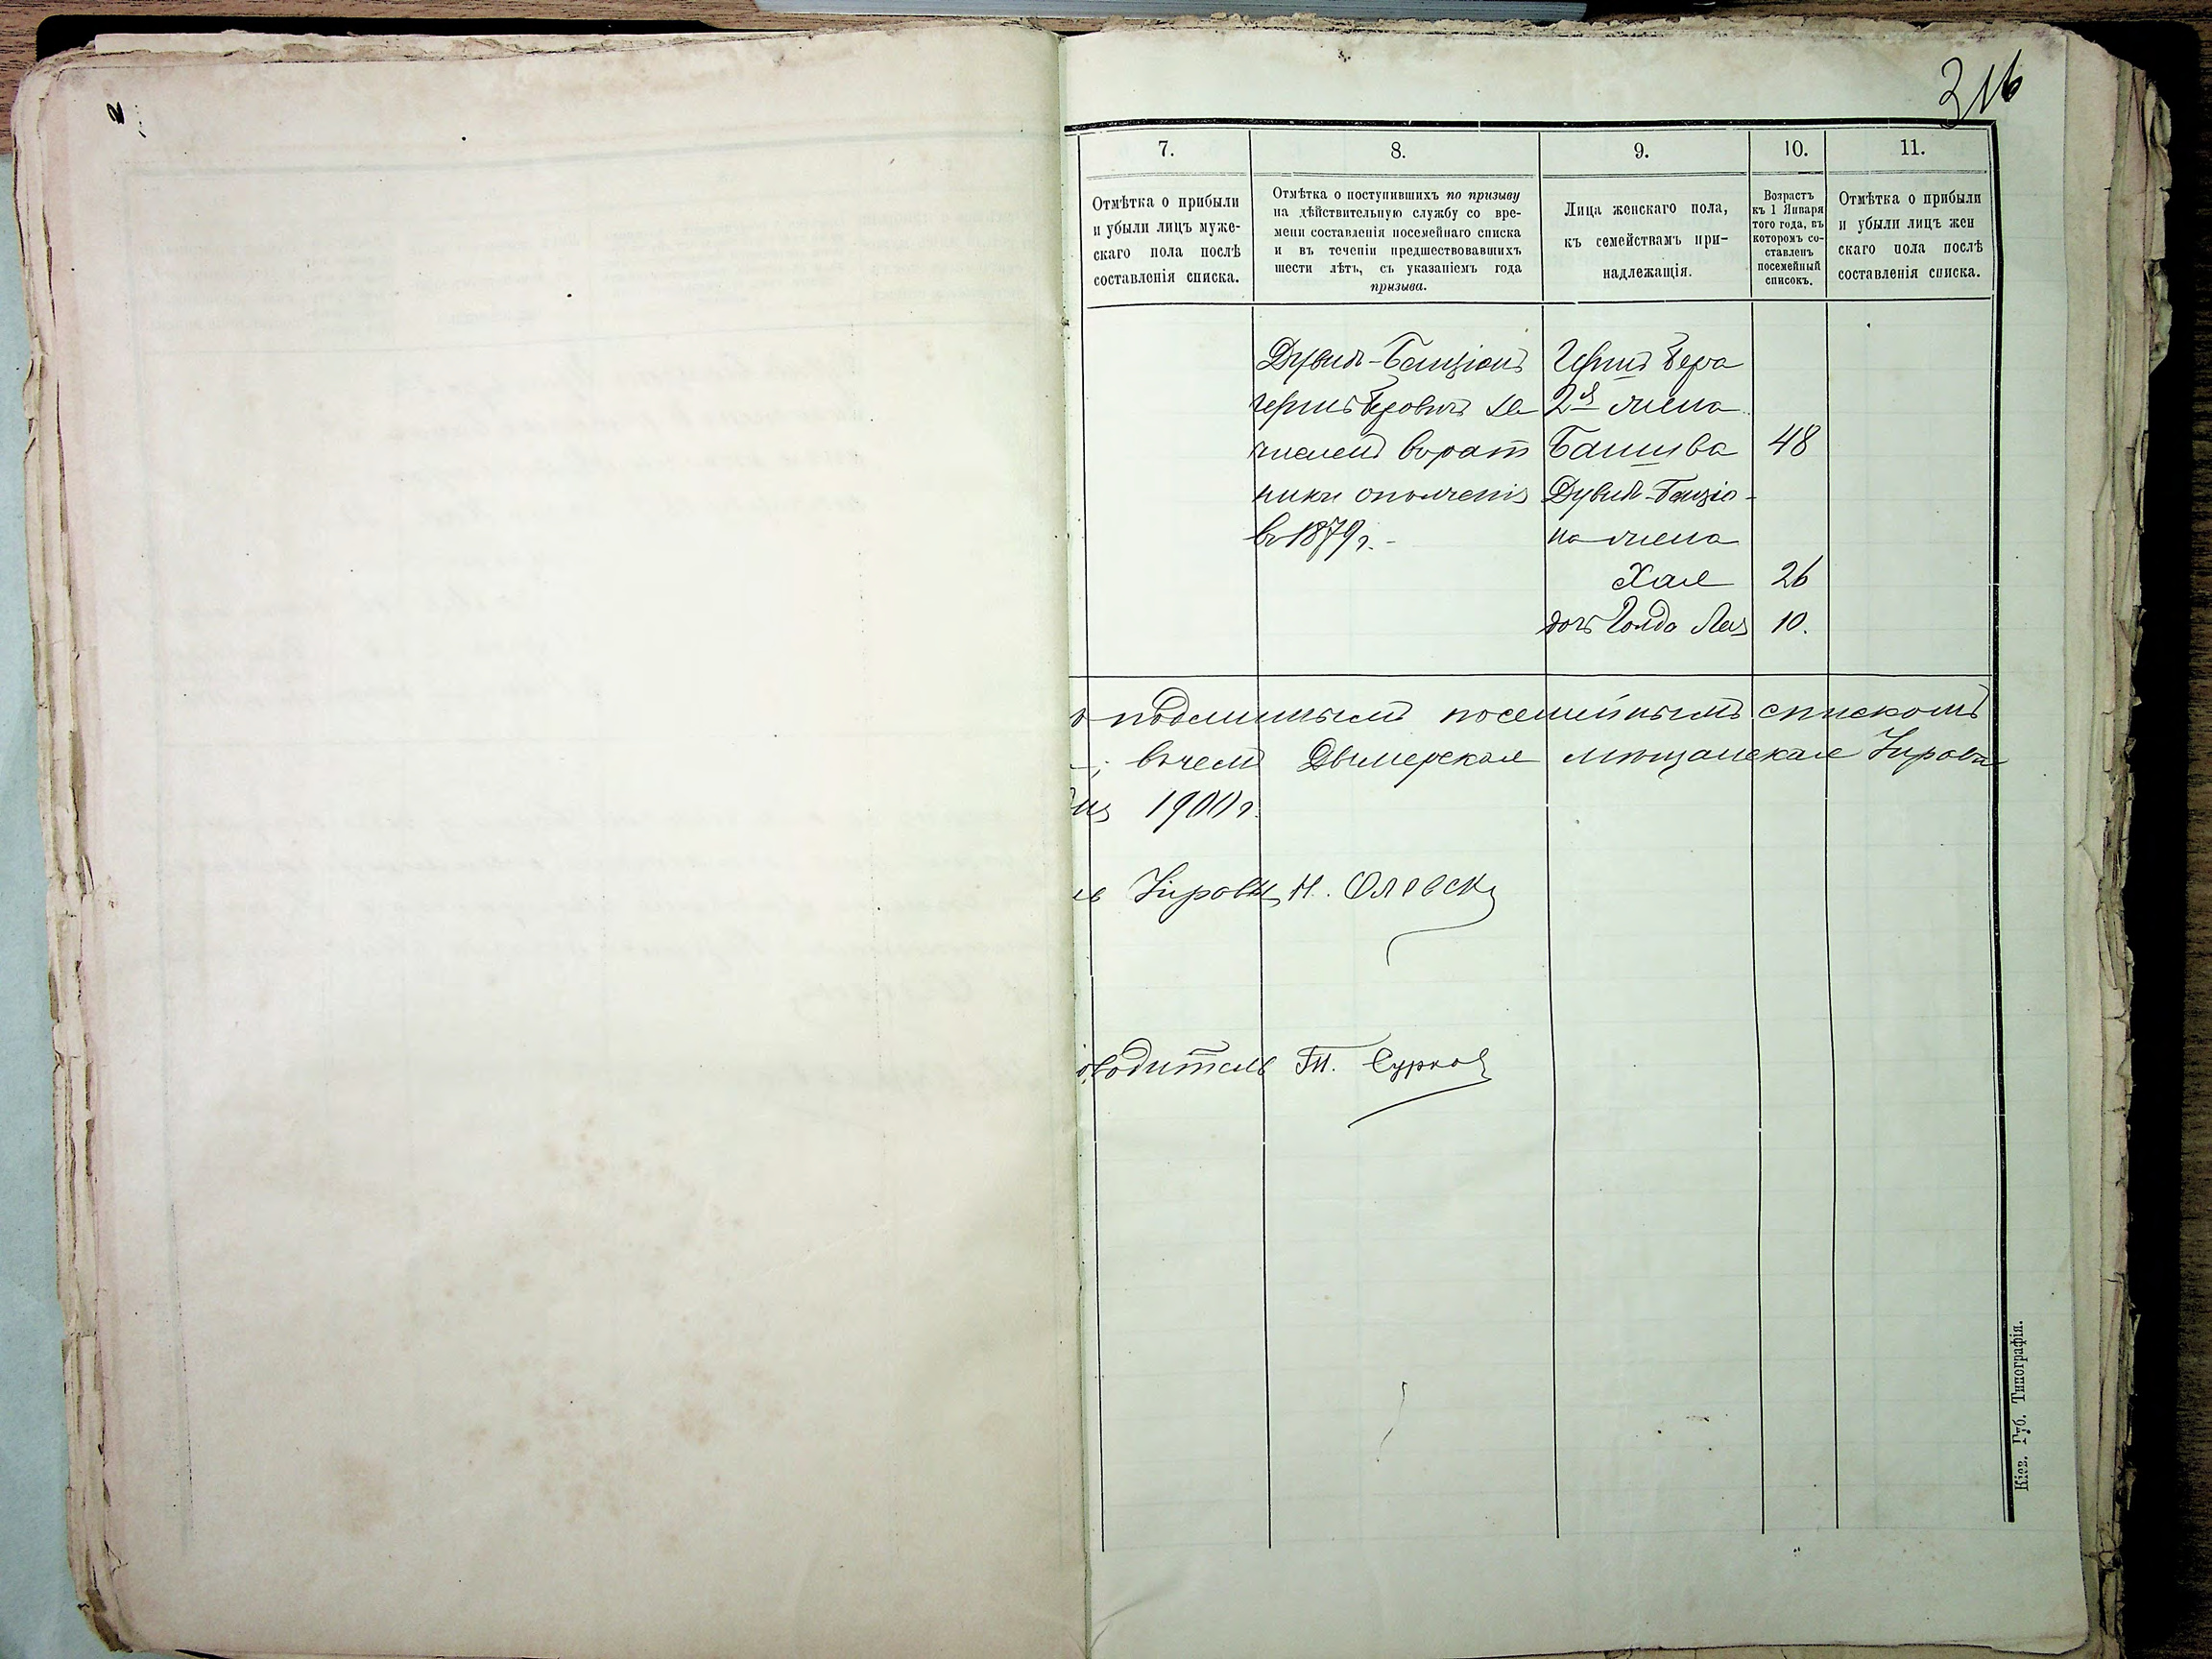 316
7.
8.
9.
10.
11.
Отмѣтка о прибыли
и убыли лицъ муже-
скаго пола послѣ
составленія списка.
Отмѣтка о поступившихъ по призыву
на дѣйствительную службу со вре-
мени составленія посемейнаго списка
и въ теченіи предшествовавшихъ
шести лѣтъ, съ указаніемъ года
призыва.
Лица женскаго пола,
къ семействамъ при-
надлежащія.
Возрастъ
къ 1 Января
того года, въ
которомъ со-
ставленъ
посемейный
списокъ.
Отмѣтка о прибыли
и убыли лицъ жен
скаго пола послѣ
составленія списка.
Дувидъ-Бенціонъ
Герш Беровичъ за
численъ въ рат
ники ополченія
въ 1879 г.
Герш Бера
2я жена
Башева 48
Дувидъ-Бенціо-
на жена
Хая 26
дочь Голда Лея 10.
подлиннымъ посемейнымъ спискомъ
въ чемъ Дымерская мѣщанская Управа
1900 г.
Управы Н. Олевск
водитель М. Сурков
Кіев. Губ. Типографія.